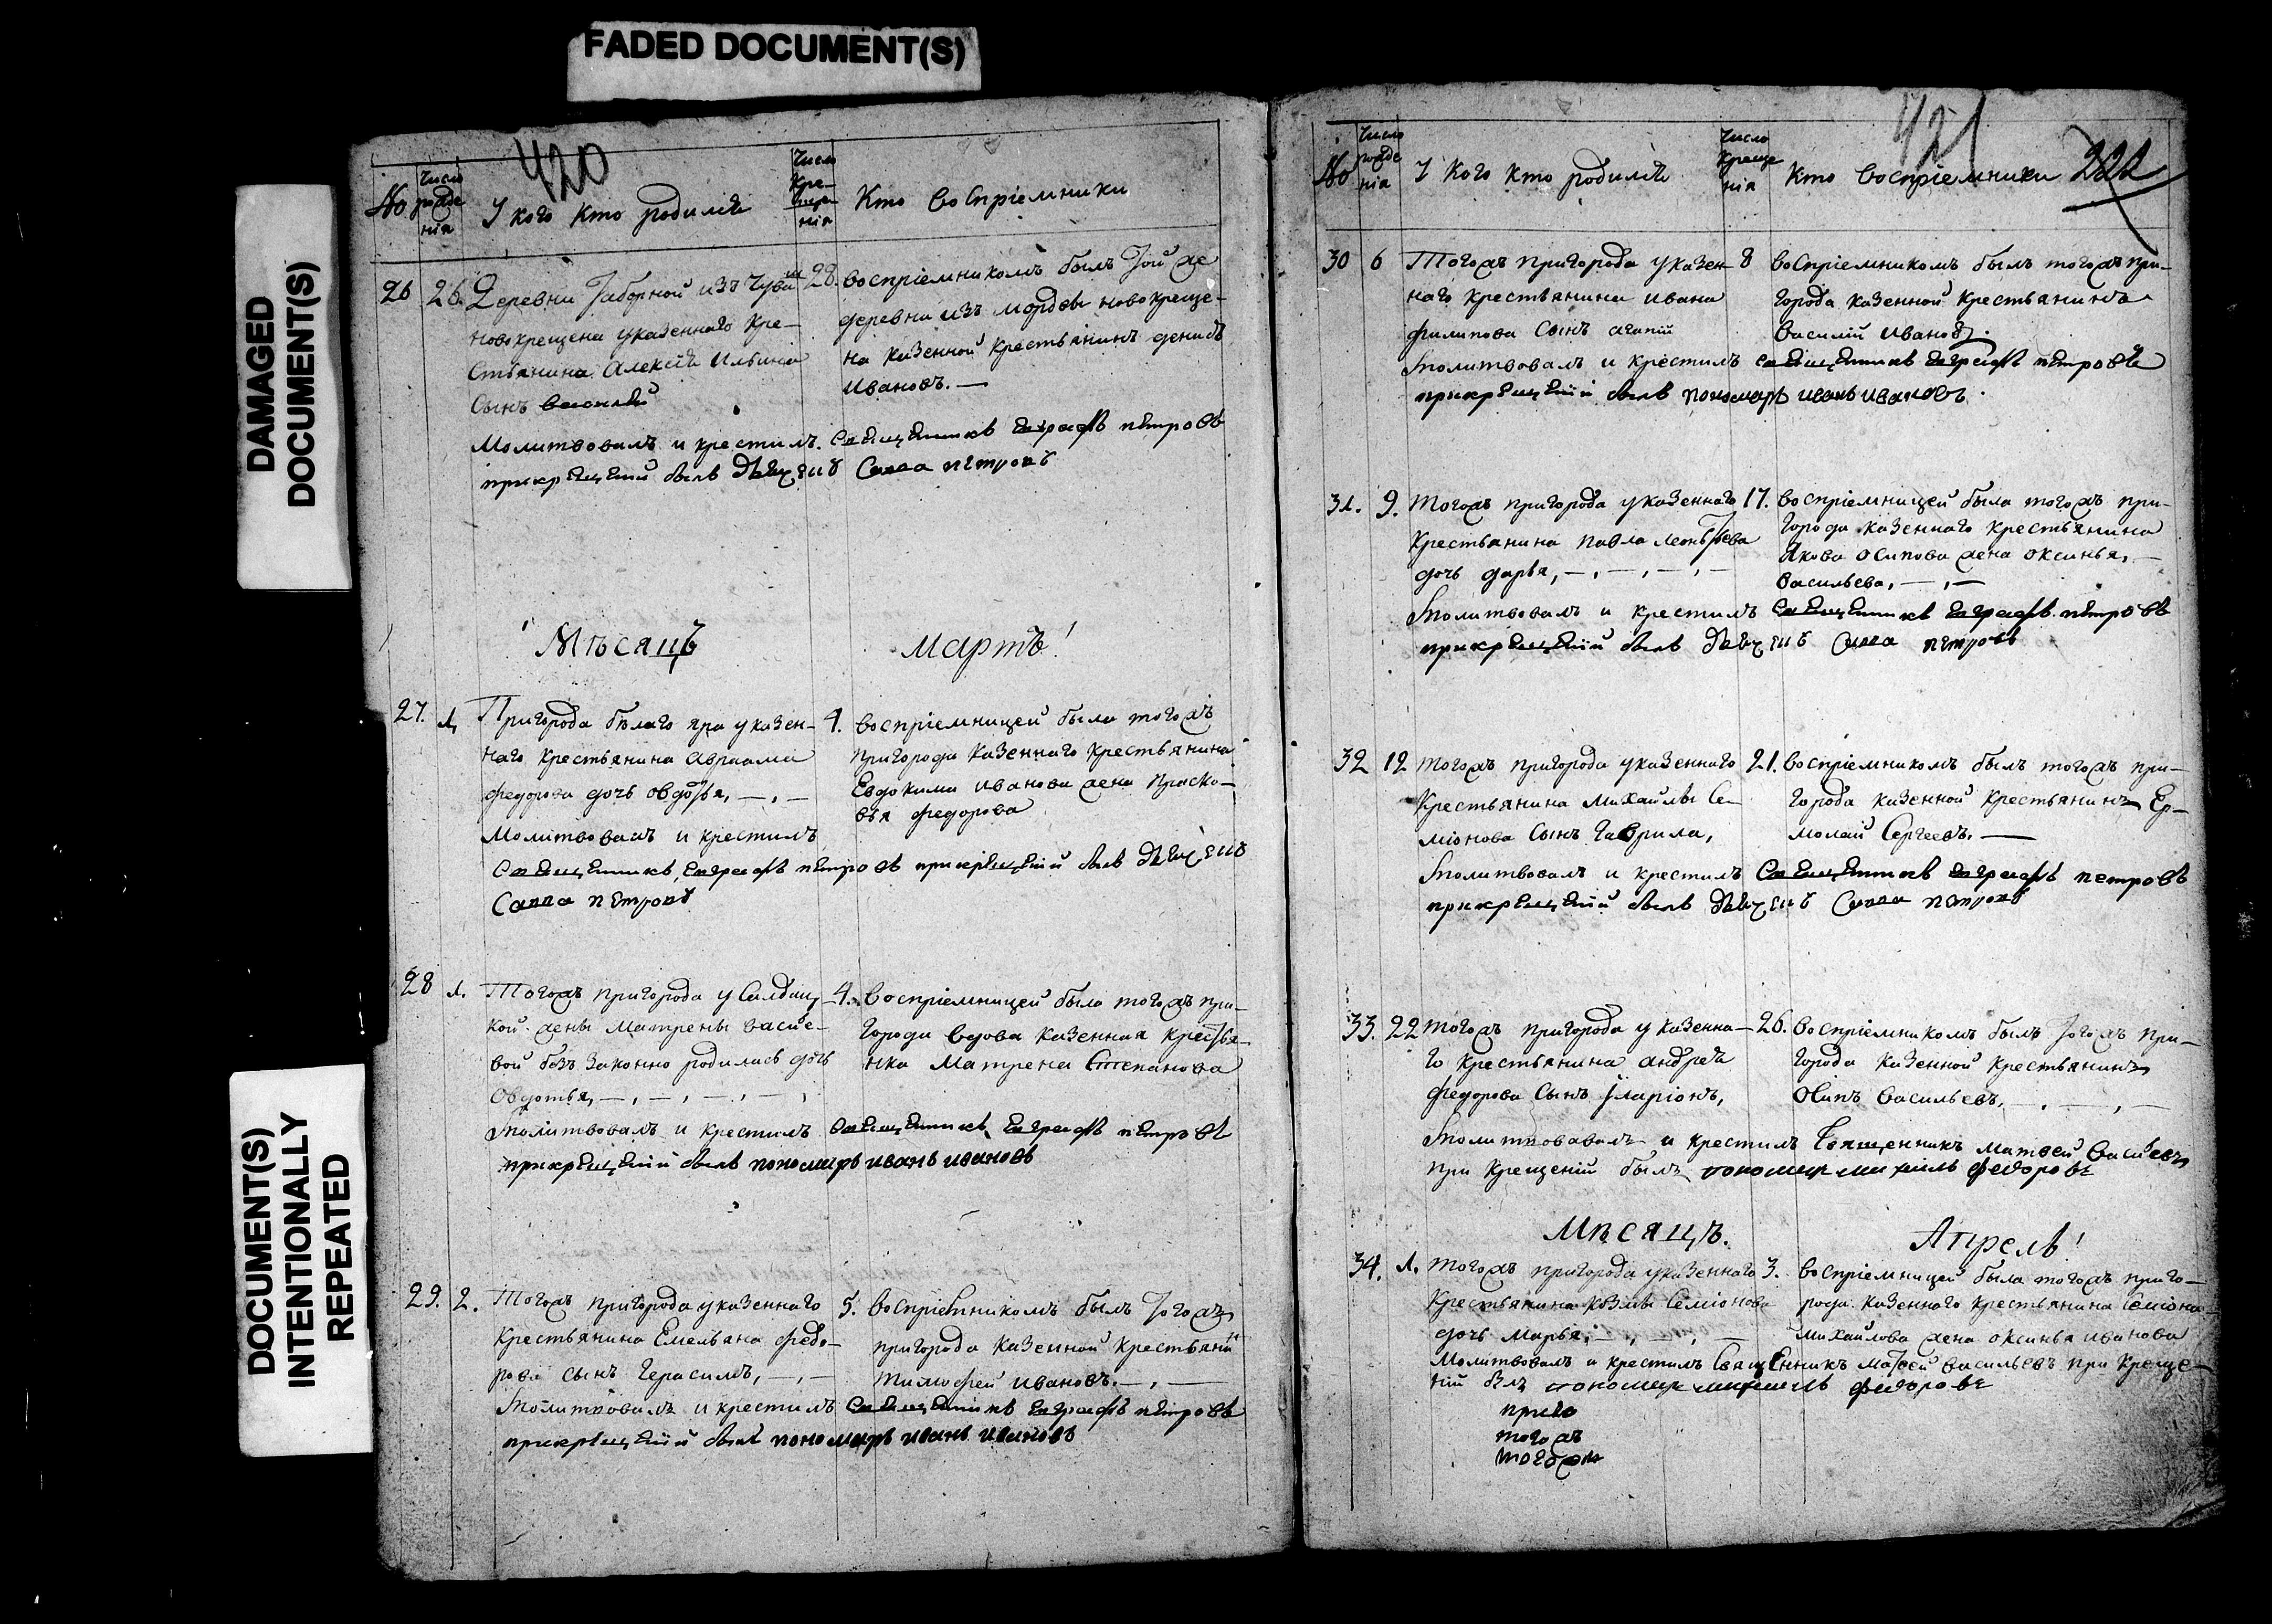 FADED DOCUMENT(S)
DAMAGED
DOCUMENT(S)
DOCUMENT(S)
INTENTIONALLY
REPEATED
420
№
Число рожденія
У кого кто родился
Число крещенія
Кто воспріемники
26
26.
Деревни Заборной изъ Чуваш
новокрещена указеннаго кре-
стьянина Алексѣя Ильина
сынъ василей
28.
воспріемникомъ былъ той же
деревни изъ мордвы новокреще-
на казенной крестьянинъ денисъ
Ивановъ. —
Молитвовалъ и крестилъ. Священникъ Евграфъ петровъ
прикрещеніи былъ дьячекъ Савва петровъ
Мѣсяцъ Мартъ!
27.
1.
Пригорода бѣлаго яра у казен-
наго крестьянина Авраама
федорова дочь овдотья, — , —
4.
воспріемницей была тогожъ
пригорода казеннаго крестьянина
Евдокима иванова жена Праско-
вья федорова
Молитвовалъ и крестилъ
Священникъ, Евграфъ петровъ прикрещеніи былъ дьячекъ
Савва петровъ
28
1.
Тогожъ пригорода у Салдац-
кой жены Матрены васье-
вой безъ законно родилась дочь
Овдотья, — , — , — , — ,
4.
воспріемницей была тогожъ при-
города вдова казенная крестья-
нка Матрена Степанова
Молитвовалъ и крестилъ Священникъ Евграфъ петровъ
прикрещеніи былъ пономарь иванъ ивановъ
29.
2.
Тогожъ пригорода указеннаго
Крестьянина Емельяна федо-
рова сынъ Герасимъ, — , —
5.
воспріемникомъ былъ тогожъ
пригорода казенной крестьянин
тимофей ивановъ. — , —
Молитвовалъ и крестилъ Священникъ Евграфъ петровъ
прикрещеніи былъ пономарь иванъ ивановъ
421
222
№
Число рожденія
У кого кто родился
Число крещенія
Кто воспріемники
30
6
Тогожъ пригорода указен-
наго крестьянина ивана
филипова сынъ агапій
8
воспріемникомъ былъ тогожъ при-
города казенной крестьянинъ
василій Ивановъ.
Молитвовалъ и крестилъ священникъ Евграфъ петровъ
прикрещеніи былъ пономарь иванъ ивановъ.
31.
9.
Тогожъ пригорода указеннаго
Крестьянина павла леонтьева
дочь дарья, — , — , — , —
17.
воспріемницей была тогожъ при-
города казеннаго крестьянина
Якова осипова жена оксинья, —
васильева, — , —
Молитвовалъ и крестилъ Священникъ Евграфъ петровъ
прикрещеніи былъ дьячекъ Савва петровъ
32
12
тогожъ пригорода указеннаго
Крестьянина Михайлы Се-
міонова сынъ гаврила,
21.
воспріемникомъ былъ тогожъ при-
города казенной крестьянинъ Ер-
молай Сергеевъ. —
Молитвовалъ и крестилъ Священникъ Евграфъ петровъ
прикрещеніи былъ дьячекъ Савва петровъ
33.
22
тогожъ пригорода у казенна-
го крестьянина андрея
федорова сынъ Иларіонъ,
26.
воспріемникомъ былъ тогожъ при-
города казенной крестьянинъ
Осипъ васильевъ, — , — , —
Молитвовалъ и крестилъ Священникъ матвей васильевъ
при крещеніи былъ пономарь михаилъ федоровъ
Мѣсяцъ. Апрель!
34.
1.
тогожъ пригорода указеннаго
Крестьянина козмы Семіонова
дочь марья, — , — , —
3.
воспріемницей была тогожъ приго-
рода казеннаго крестьянина Семіона
михайлова жена оксинья иванова
Молитвовалъ и крестилъ Священникъ матвей васильевъ при креще-
ніи былъ пономарь михаилъ федоровъ
приго
тогожъ